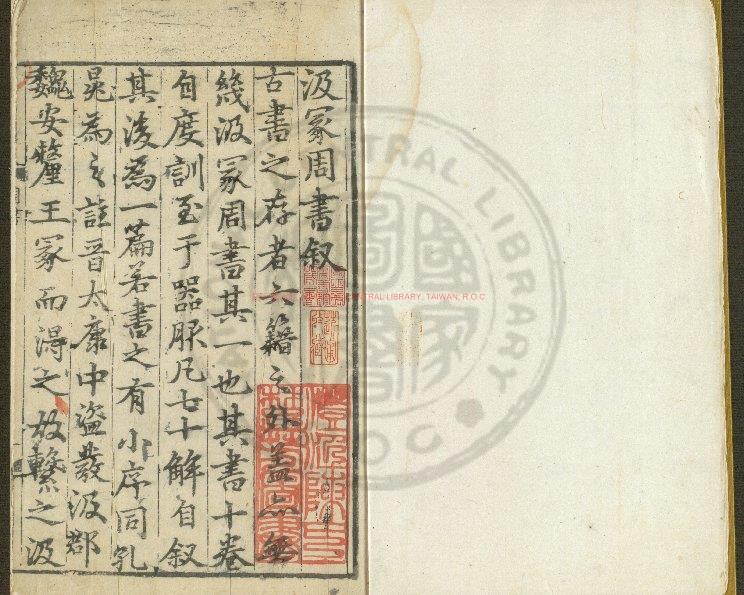 汲冡周書叙
古書之存者六籍之外蓋亦無
幾汲冡周書其一也其書十卷
自度訓至于器服凡七十解自叙
其後爲一篇若書之有小序同孔
晁為之註晉太康中盗發汲郡
魏安釐王冡而得之故繫之汲
CENTRAL LIBRARY, TAIWAN, R.O.C